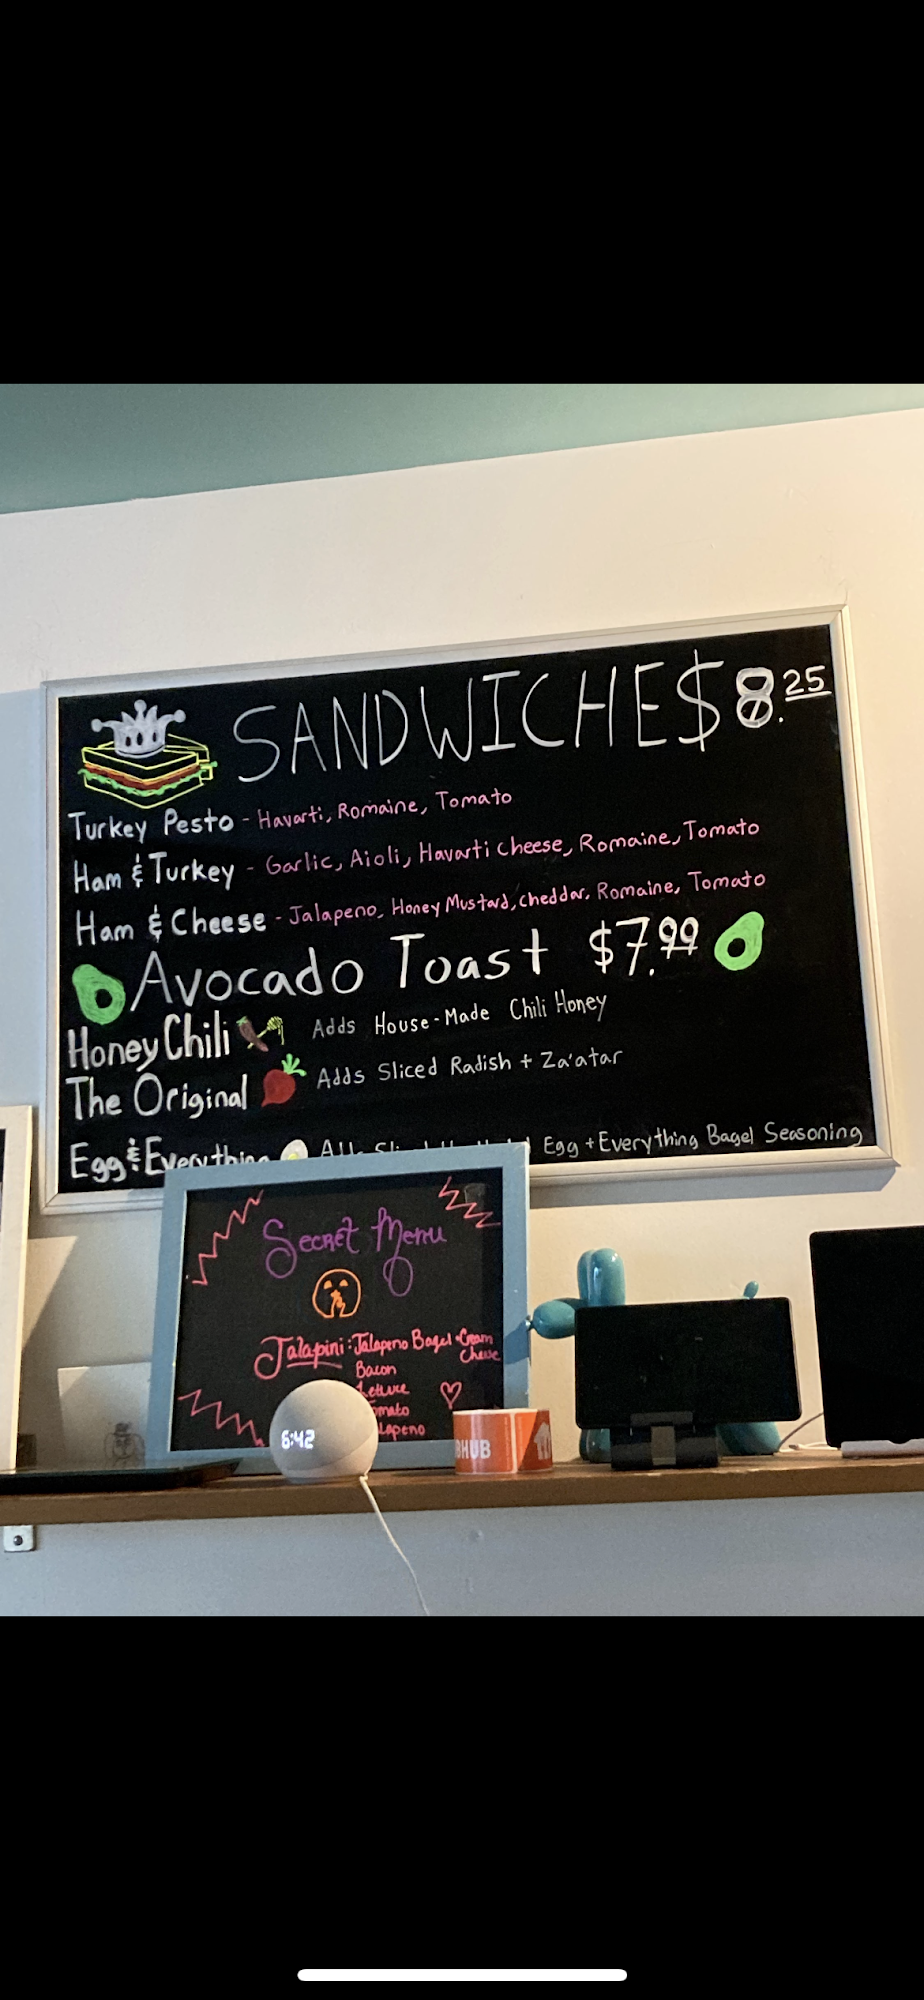 SANDWICHE$ 8.25
Turkey Pesto - Havarti, Romaine, Tomato
Ham & Turkey - Garlic, Aioli, Havarti Cheese, Romaine, Tomato
Ham & Cheese - Jalapeno, Honey Mustard, cheddar, Romaine, Tomato
Avocado Toast $7.99
Honey Chili Adds House-Made Chili Honey
The Original Adds Sliced Radish + Za'atar
Egg & Everything Egg + Everything Bagel Seasoning
Secret Menu
Jalapini: Jalapeno Bagel + Cream
Cheese
Bacon
Lettuce
6:42
HUB